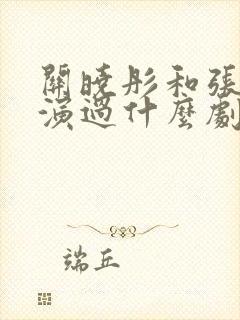 關曉彤和張
演過什麼劇
端丘